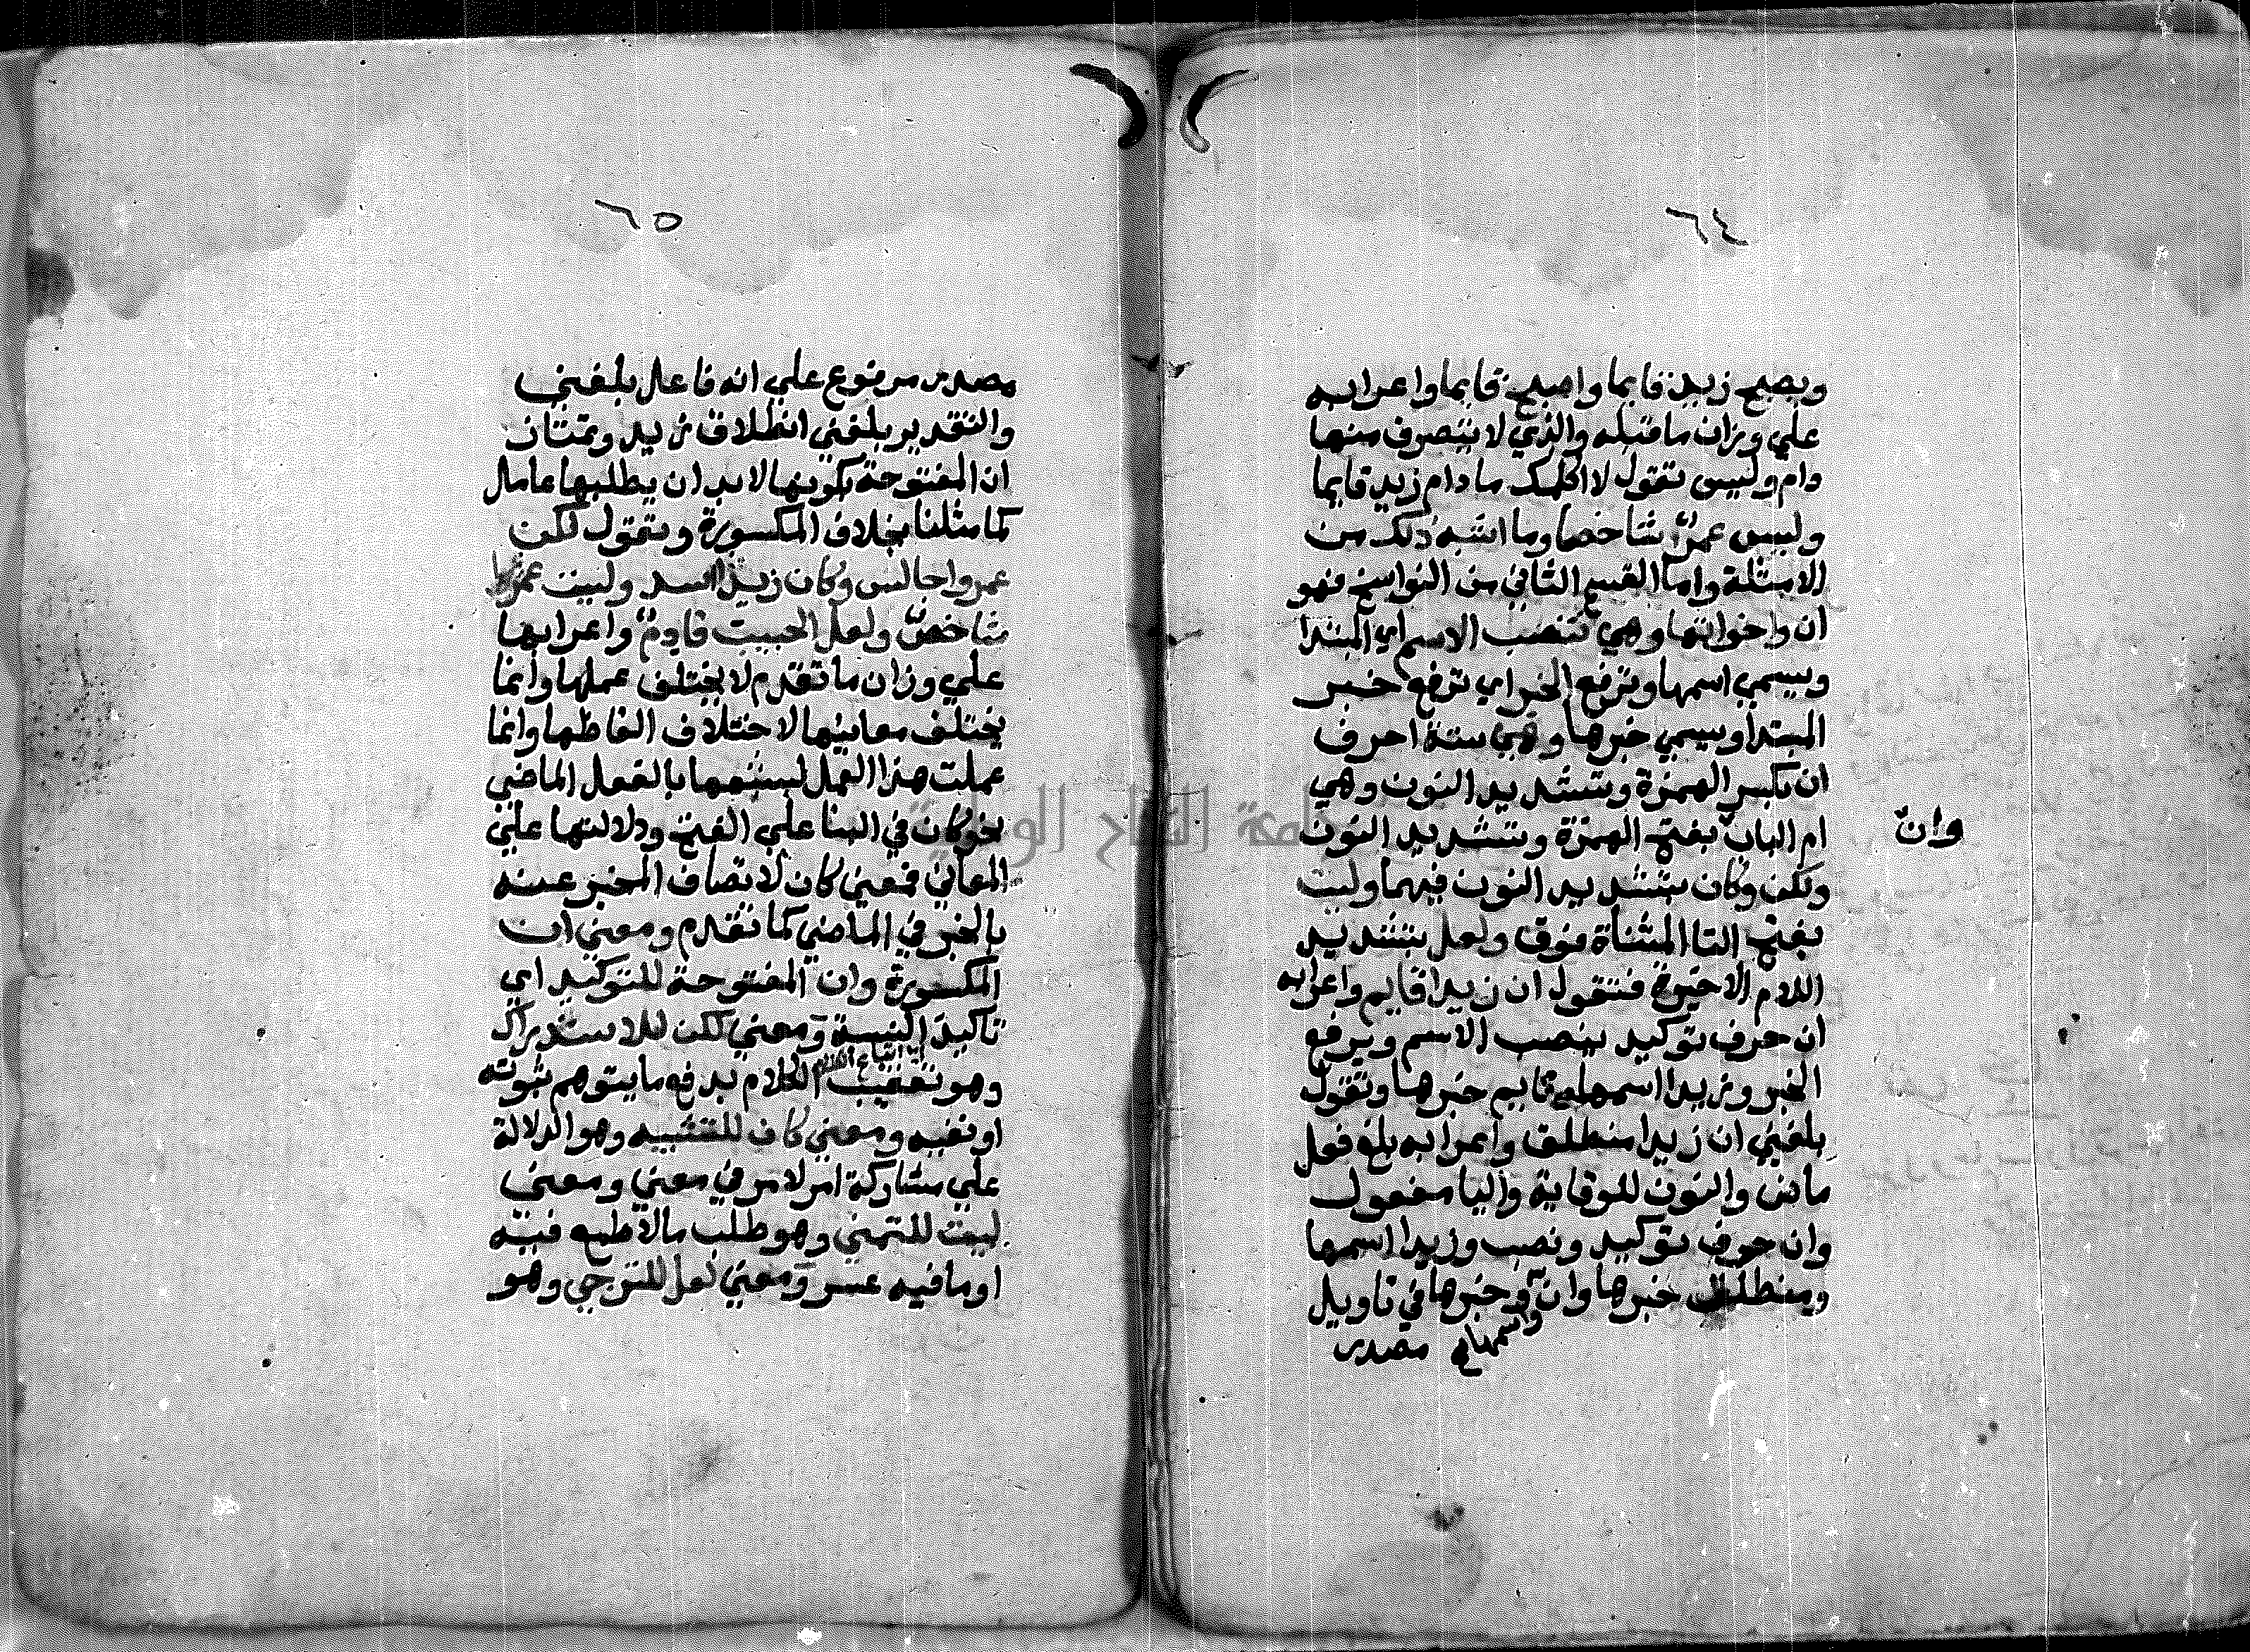 ٦٤
ويصبح زيد قايما واصبح قايما واعرابه
علي وزان ما قبله والذي لا يتصرف منها
دام وليس تقول لا اكلمك ما دام زيد قايما
وليس عمرٌو شاخصا وما اشبه ذلك من
الامثلة واما القسم الثاني من النواسخ فهو
ان واخواتها وهي تنصب الاسم اي المبتدا
ويسمي اسمها وترفع الخبر اي ترفع خبر
المبتدا ويسمي خبرها وهي ستة احرف
ان بكسر الهمزة وتشديد النون وهي
ام الباب بفتح الهمزة وتشديد النون
وانّ
ولكن وكان بتشديد النون فيهما وليت
بفتح التا المثناة فوق ولعل بتشديد
اللام الاخيرة فتقول ان زيدا قايم واعرابه
ان حرف توكيد ينصب الاسم ويرفع
الخبر وزيدا اسمها قايم خبرها وتقول
بلغني ان زيدا منطلق واعرابه بلغ فعل
ماض والنون للوقاية واليا مفعول
وان حرف توكيد ونصب وزيدا اسمها
ومنطلق خبرها وان وخبرها في تاويل
واسمها مصدر
٦٥
مصدر مرفوع علي انه فاعل بلغني
والتقدير بلغني انطلاق زيد وتمتاز
ان المفتوحة بكونها لابد ان يطلبها عامل
كما مثلنا بخلاف المكسورة وتقول لكن
عمروا جالس وكان زيدا اسد وليت عمروا
شاخصٌ ولعل الحبيب قادمٌ واعرابها
علي وزان ما تقدم لا يختلف عملها وانما
يختلف معانيها لاختلاف الفاظها وانما
عملت هذا العمل لشبهها بالفعل الماضي
نحو كان في البنا علي الفتح ودلالتها علي
المعاني فمعني كان لاتصاف المخبر عنه
بالخبر في الماضي كما تقدم ومعني ان
المكسورة وان المفتوحة للتوكيد اي
تاكيد النسبة ومعني لكن للاستدراك
وهو تعقيب الكلام بدفع ما يتوهم ثبوته
او نفيه ومعني كان للتشبيه وهو الدلالة
علي مشاركة امر لامر في معني ومعني
ليت للتمني وهو طلب مالا طمع فيه
او ما فيه عسر ومعني لعل للترجي وهو
جامعة النجاح الوطنية